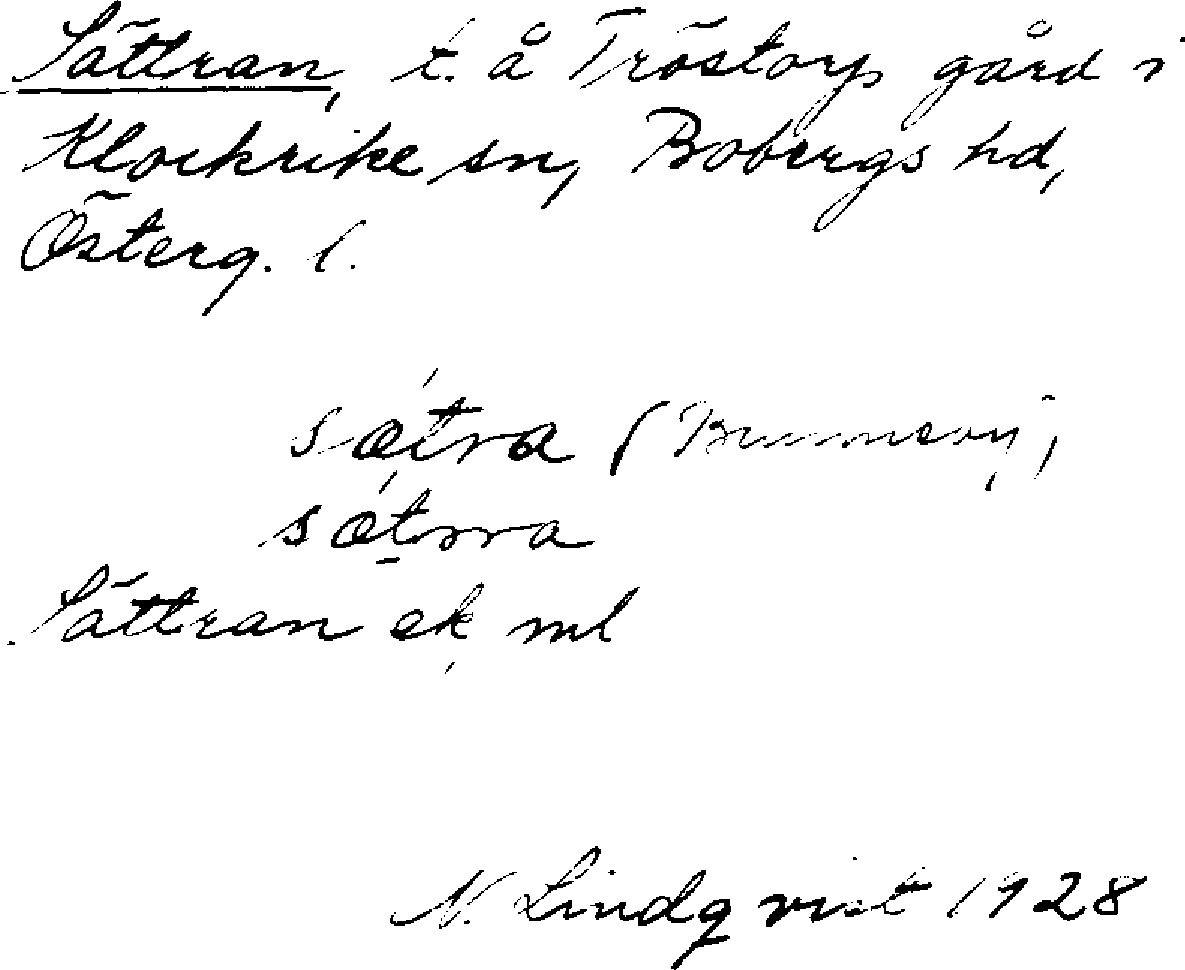 Sättran, t. å Tröstorps gård i
Klockrike sn, Bobergs hd,
Österg. l.
sætra (
sætrra
Sättran ek ml
N. Lindqvist 1928